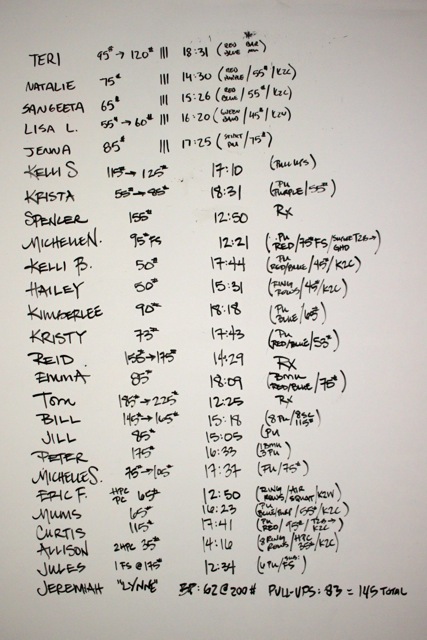 TERI 95# → 120# ||| 18:31 (RED BLUE
NATALIE 75# ||| 14:30 (RED PURPLE/55#/K2C)
SANGEETA 65# ||| 15:26 (RED BLUE/55#/K2C)
LISA L. 55# → 60# ||| 16:20 (GREEN BAND/45#/K2W)
JENNA 85# ||| 17:25 (STRICT PU/75#)
KELLI S 115# → 125# 17:10 (PULL UPS)
KRISTA 55# → 85# 18:31 (PU PURPLE/55#)
SPENCER 155# 12:50 Rx
MICHELLE N. 95# FS 12:21 (PU RED/75# FS/ T2B → GHD
KELLI B. 50# 17:44 (PU RED/BLUE/45#/K2C)
HAILEY 50# 15:31 (RING ROWS/45#/K2C)
KIMBERLEE 90# 18:18 (PU BLUE/65#)
KRISTY 73# 17:43 (PU RED/BLUE/53#)
REID 155# → 175# 14:29 RX
EMMA 85# 18:09 (BMU RED/BLUE/75#)
TOM 185# → 225# 12:25 Rx
BILL 145# → 165# 15:18 (8 PU/ 115#
JILL 85# 15:05 (PU
PETER 175# 16:33 (1 BMU 3 PU)
MICHELLE S. 75# → 105# 17:37 (PU/75#)
ERIC F. HPC PC 65# 12:50 (RING ROWS/AIR SQUAT/K2W)
MUMS 65# 16:23 (PU /55#/K2C)
CURTIS 115# 17:41 (PU RED/95#/T2B → K2C)
ALLISON 2HPC 35# 14:16 (8 RING ROWS/HPC 35#/K2C)
JULES 1 FS @ 175# 12:34 (6 PU/ FS)
JEREMIAH "LYNNE" BP: 62 @ 200# PULL-UPS: 83 = 145 TOTAL